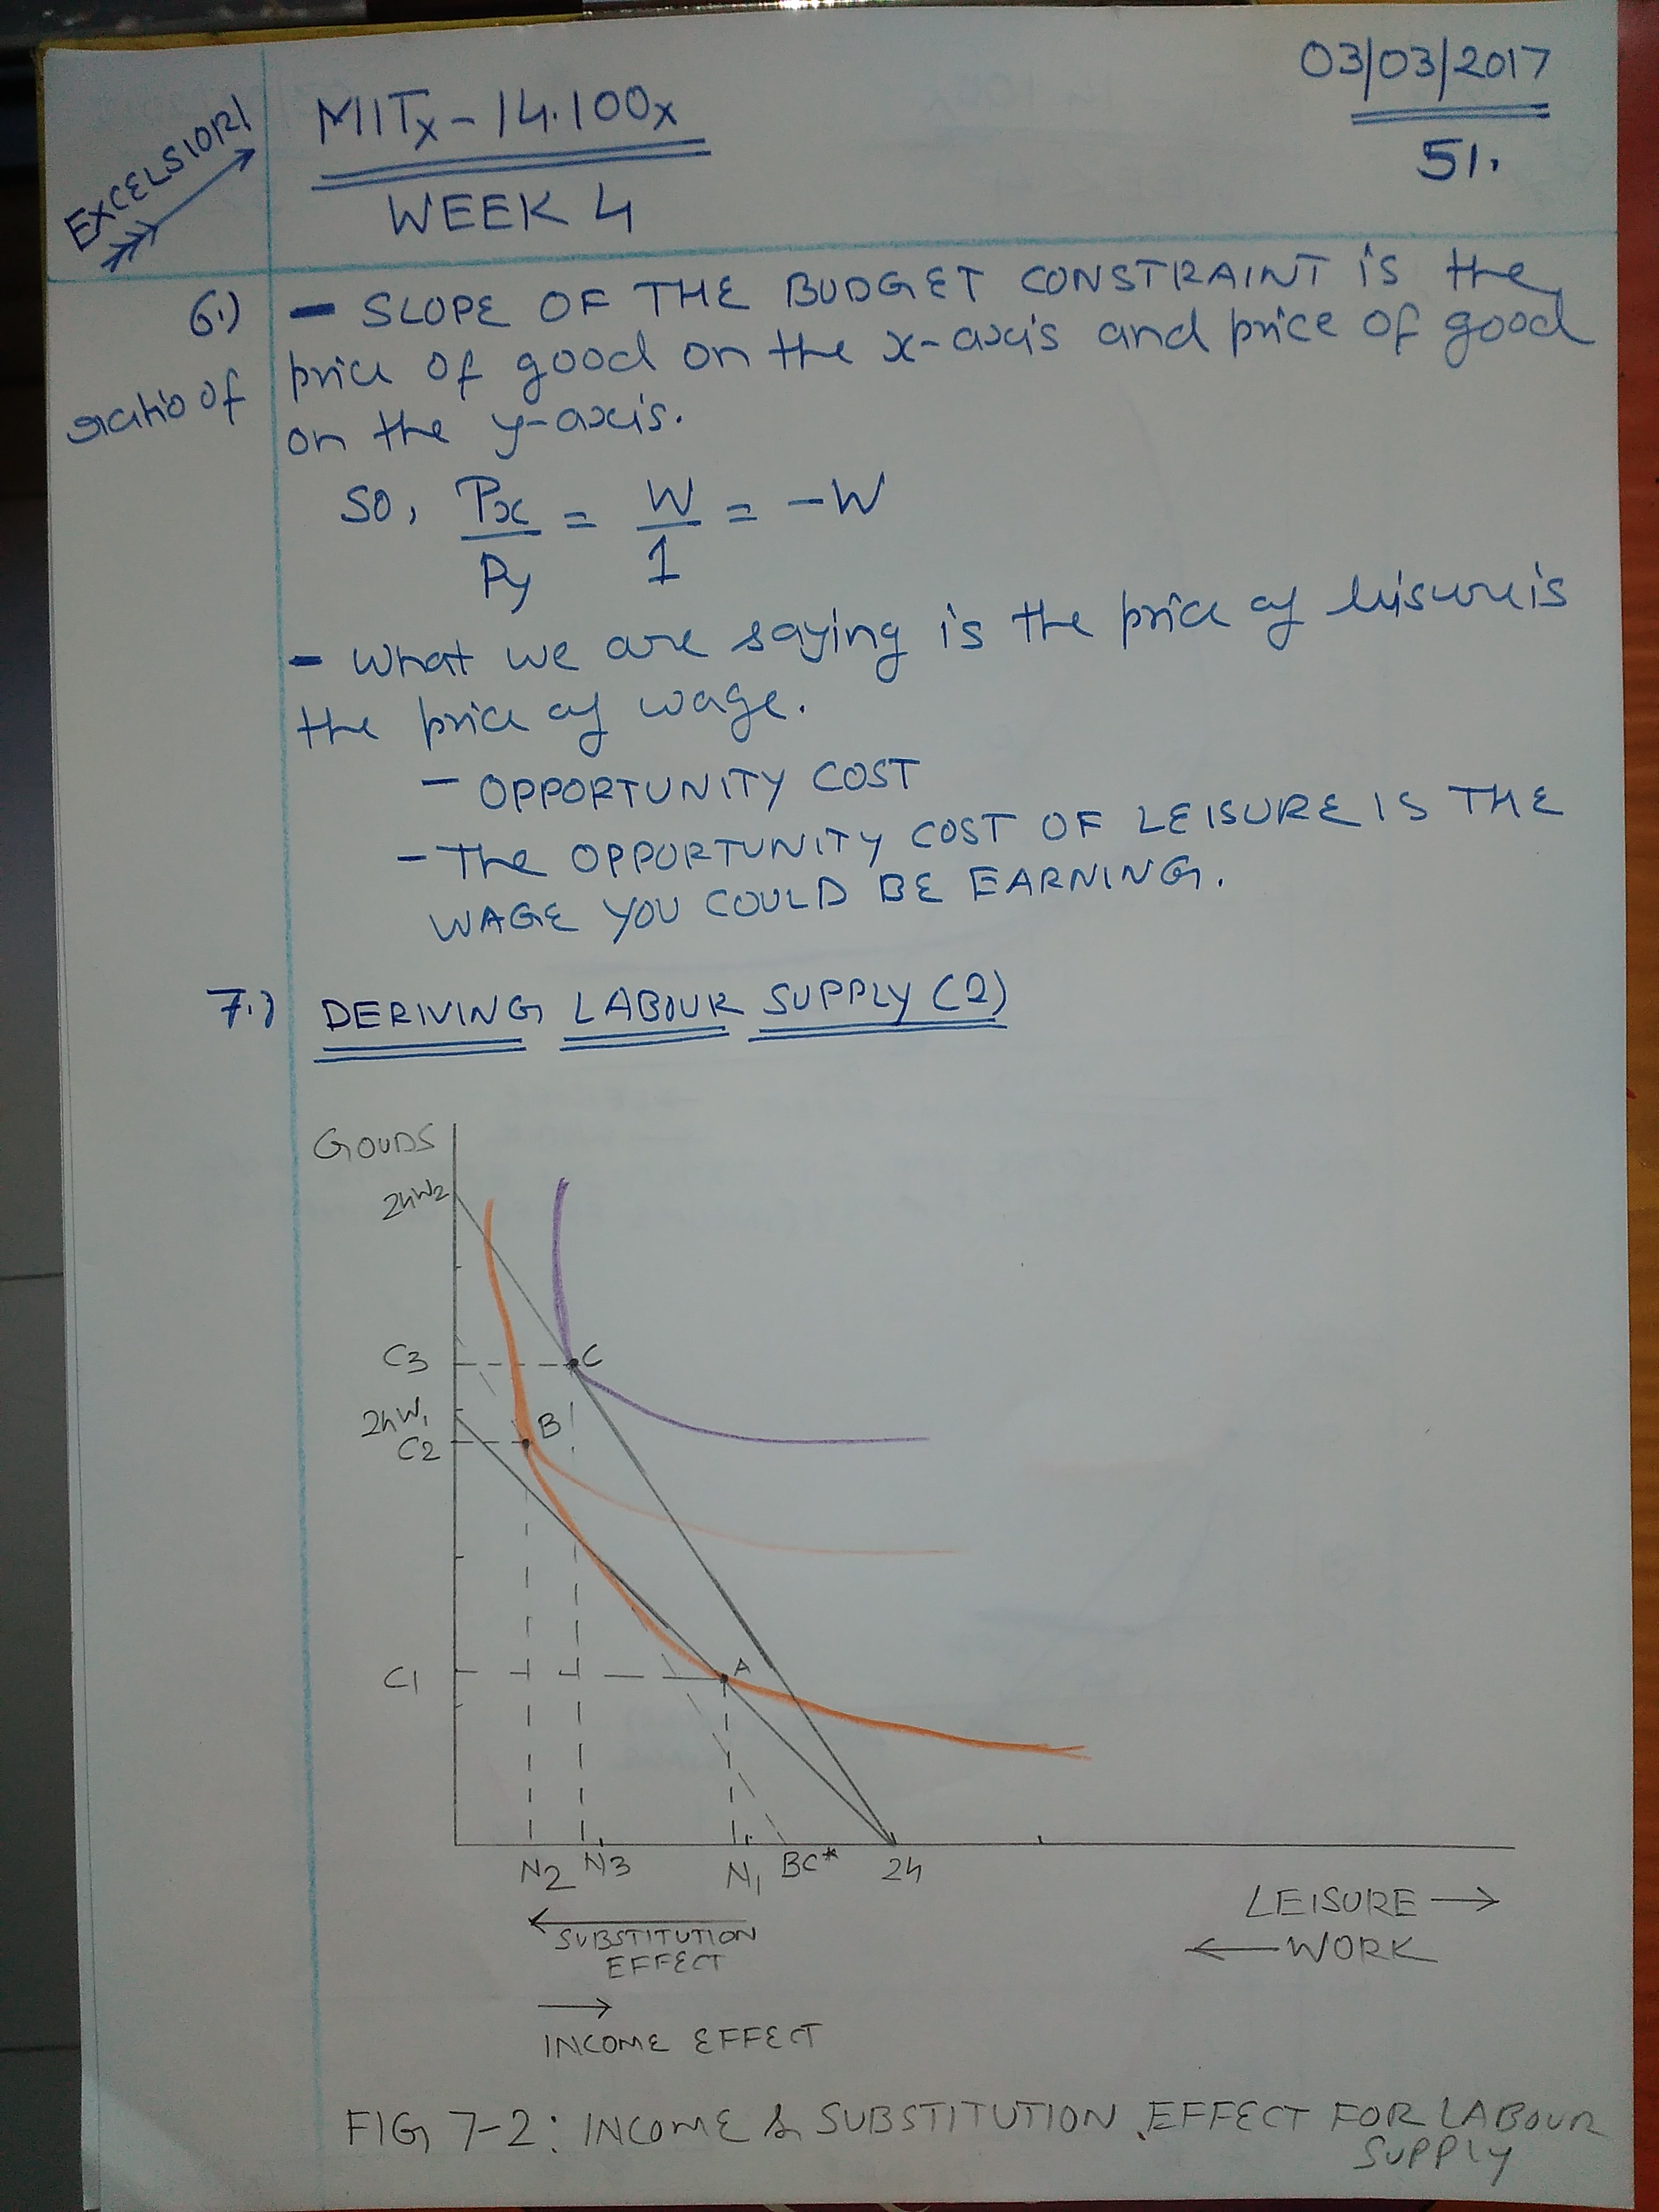 EXCELSIOR!
MITx - 14.100x
WEEK 4
03/03/2017
51.
6.) - SLOPE OF THE BUDGET CONSTRAINT is the
ratio of price of good on the x-axis and price of good
on the y-axis.
SO, Px/Py = W/1 = -W
- What we are saying is the price of leisure is
the price of wage.
- OPPORTUNITY COST
- The OPPORTUNITY COST OF LEISURE IS THE
WAGE YOU COULD BE EARNING.
7.) DERIVING LABOUR SUPPLY (2)
GOODS
24W2
C3
C
24W1
B
C2
C1
A
N2 N3 N1 BC* 24
LEISURE →
← WORK
← SUBSTITUTION
EFFECT
→
INCOME EFFECT
FIG 7-2: INCOME & SUBSTITUTION EFFECT FOR LABOUR
SUPPLY